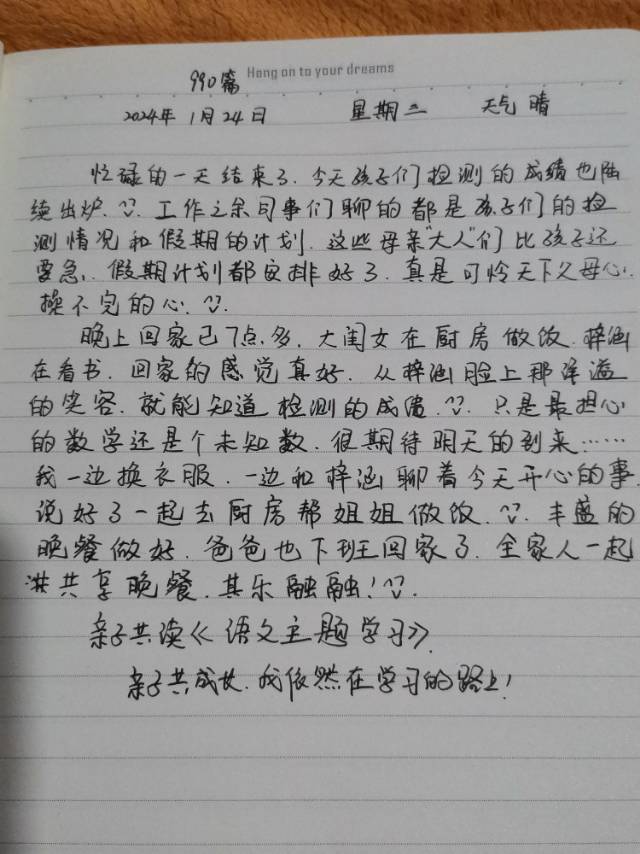 Hang on to your dreams
990篇
2024年 1月24日 星期三 天气 晴
忙碌的一天结束了.今天孩子们检测的成绩也陆
续出炉.工作之余同事们聊的都是孩子们的检
测情况和假期的计划.这些母亲"大人"们比孩子还
要急.假期计划都安排好了.真是可怜天下父母心.
操不完的心.
晚上回家已7点多.大闺女在厨房做饭.梓涵
在看书.回家的感觉真好.从梓涵脸上那洋溢
的笑容.就能知道检测的成绩.只是最担心
的数学还是个未知数.很期待明天的到来……
我一边换衣服.一边和梓涵聊着今天开心的事.
说好了一起去厨房帮姐姐做饭.丰盛的
晚餐做好.爸爸也下班回家了.全家人一起
共享晚餐.其乐融融!
亲子共读《语文主题学习》.
亲子共成长.我依然在学习的路上!